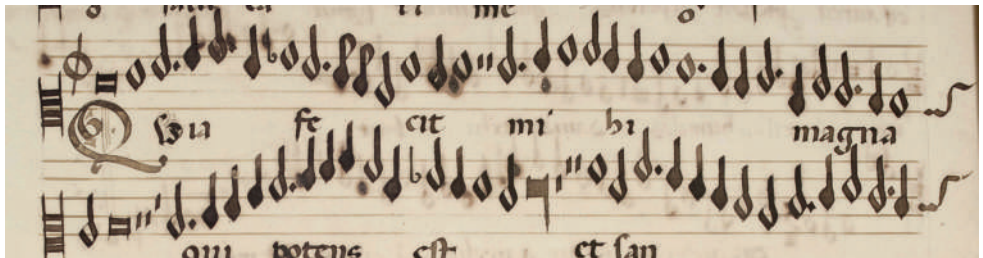 me
Quia fe cit mi hi magna
qui potens est et san